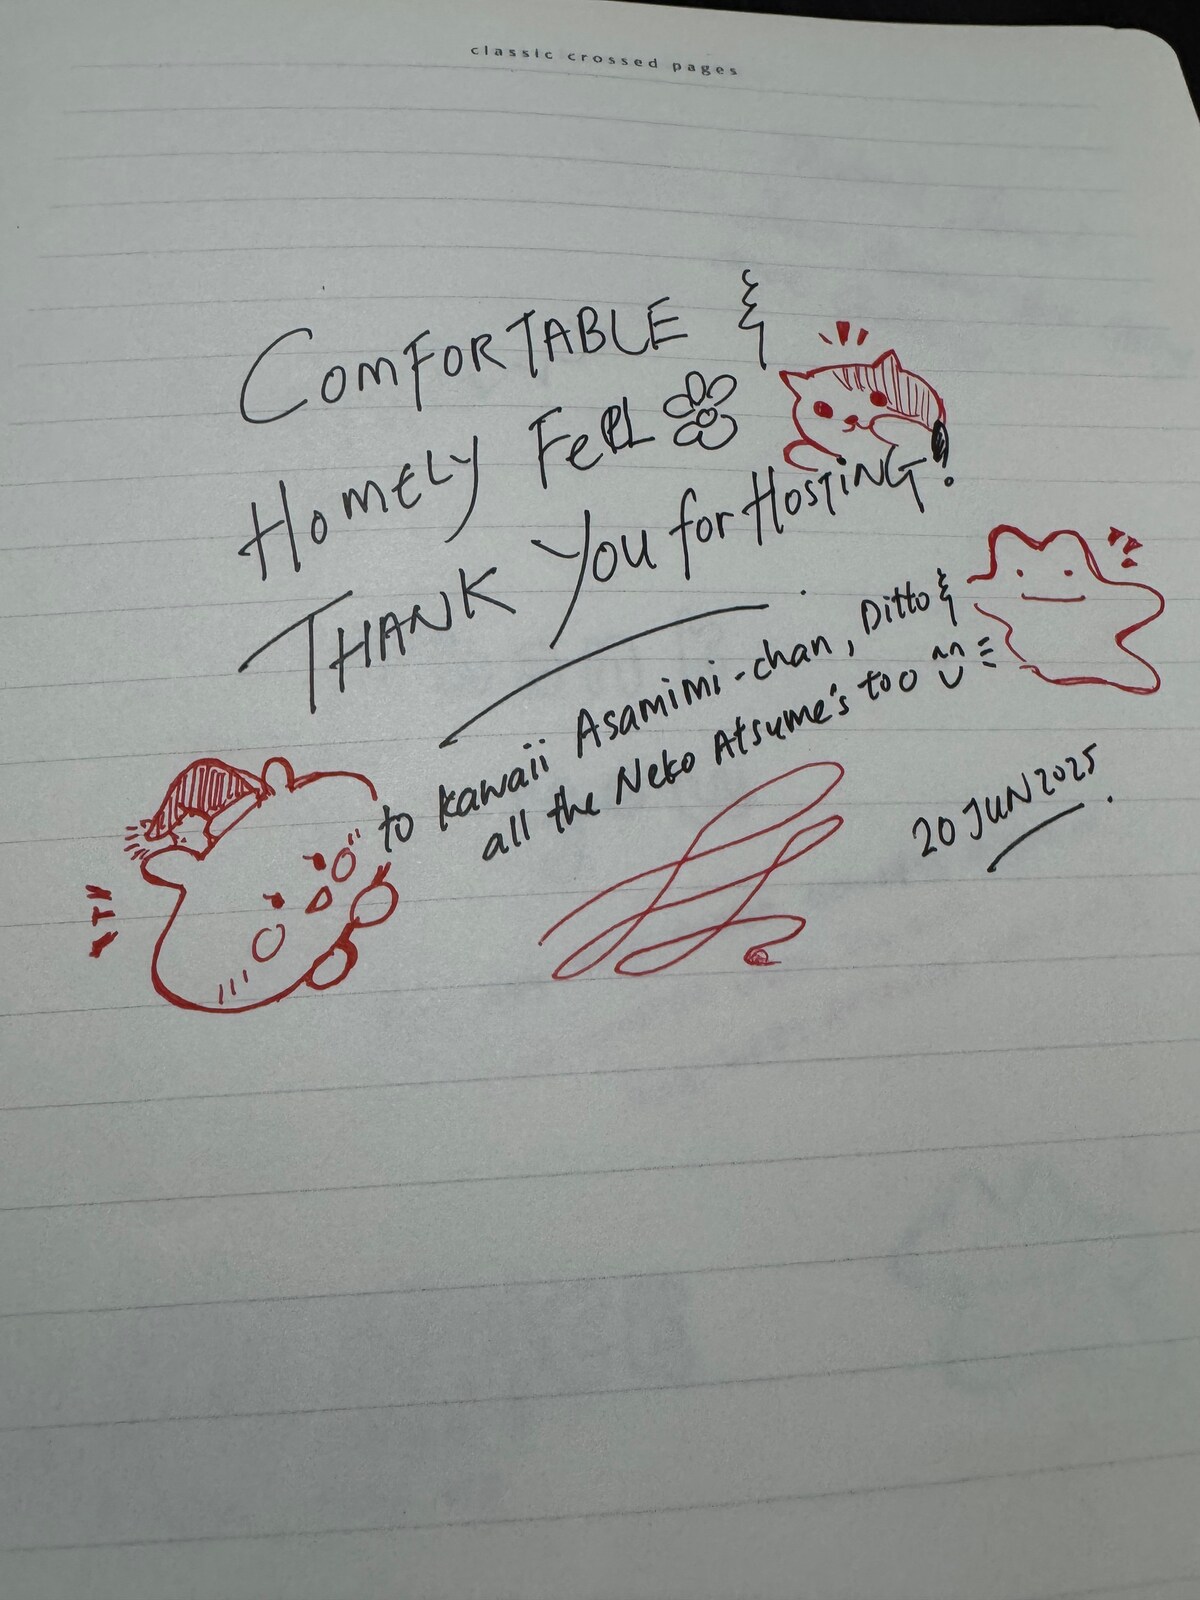 classic crossed pages
COMFORTABLE &
HOMELY FEEL
THANK YOU for HOSTING!
to kawaii Asamimi-chan, Ditto &
all the Neko Atsume's too
20 JUN 2025.